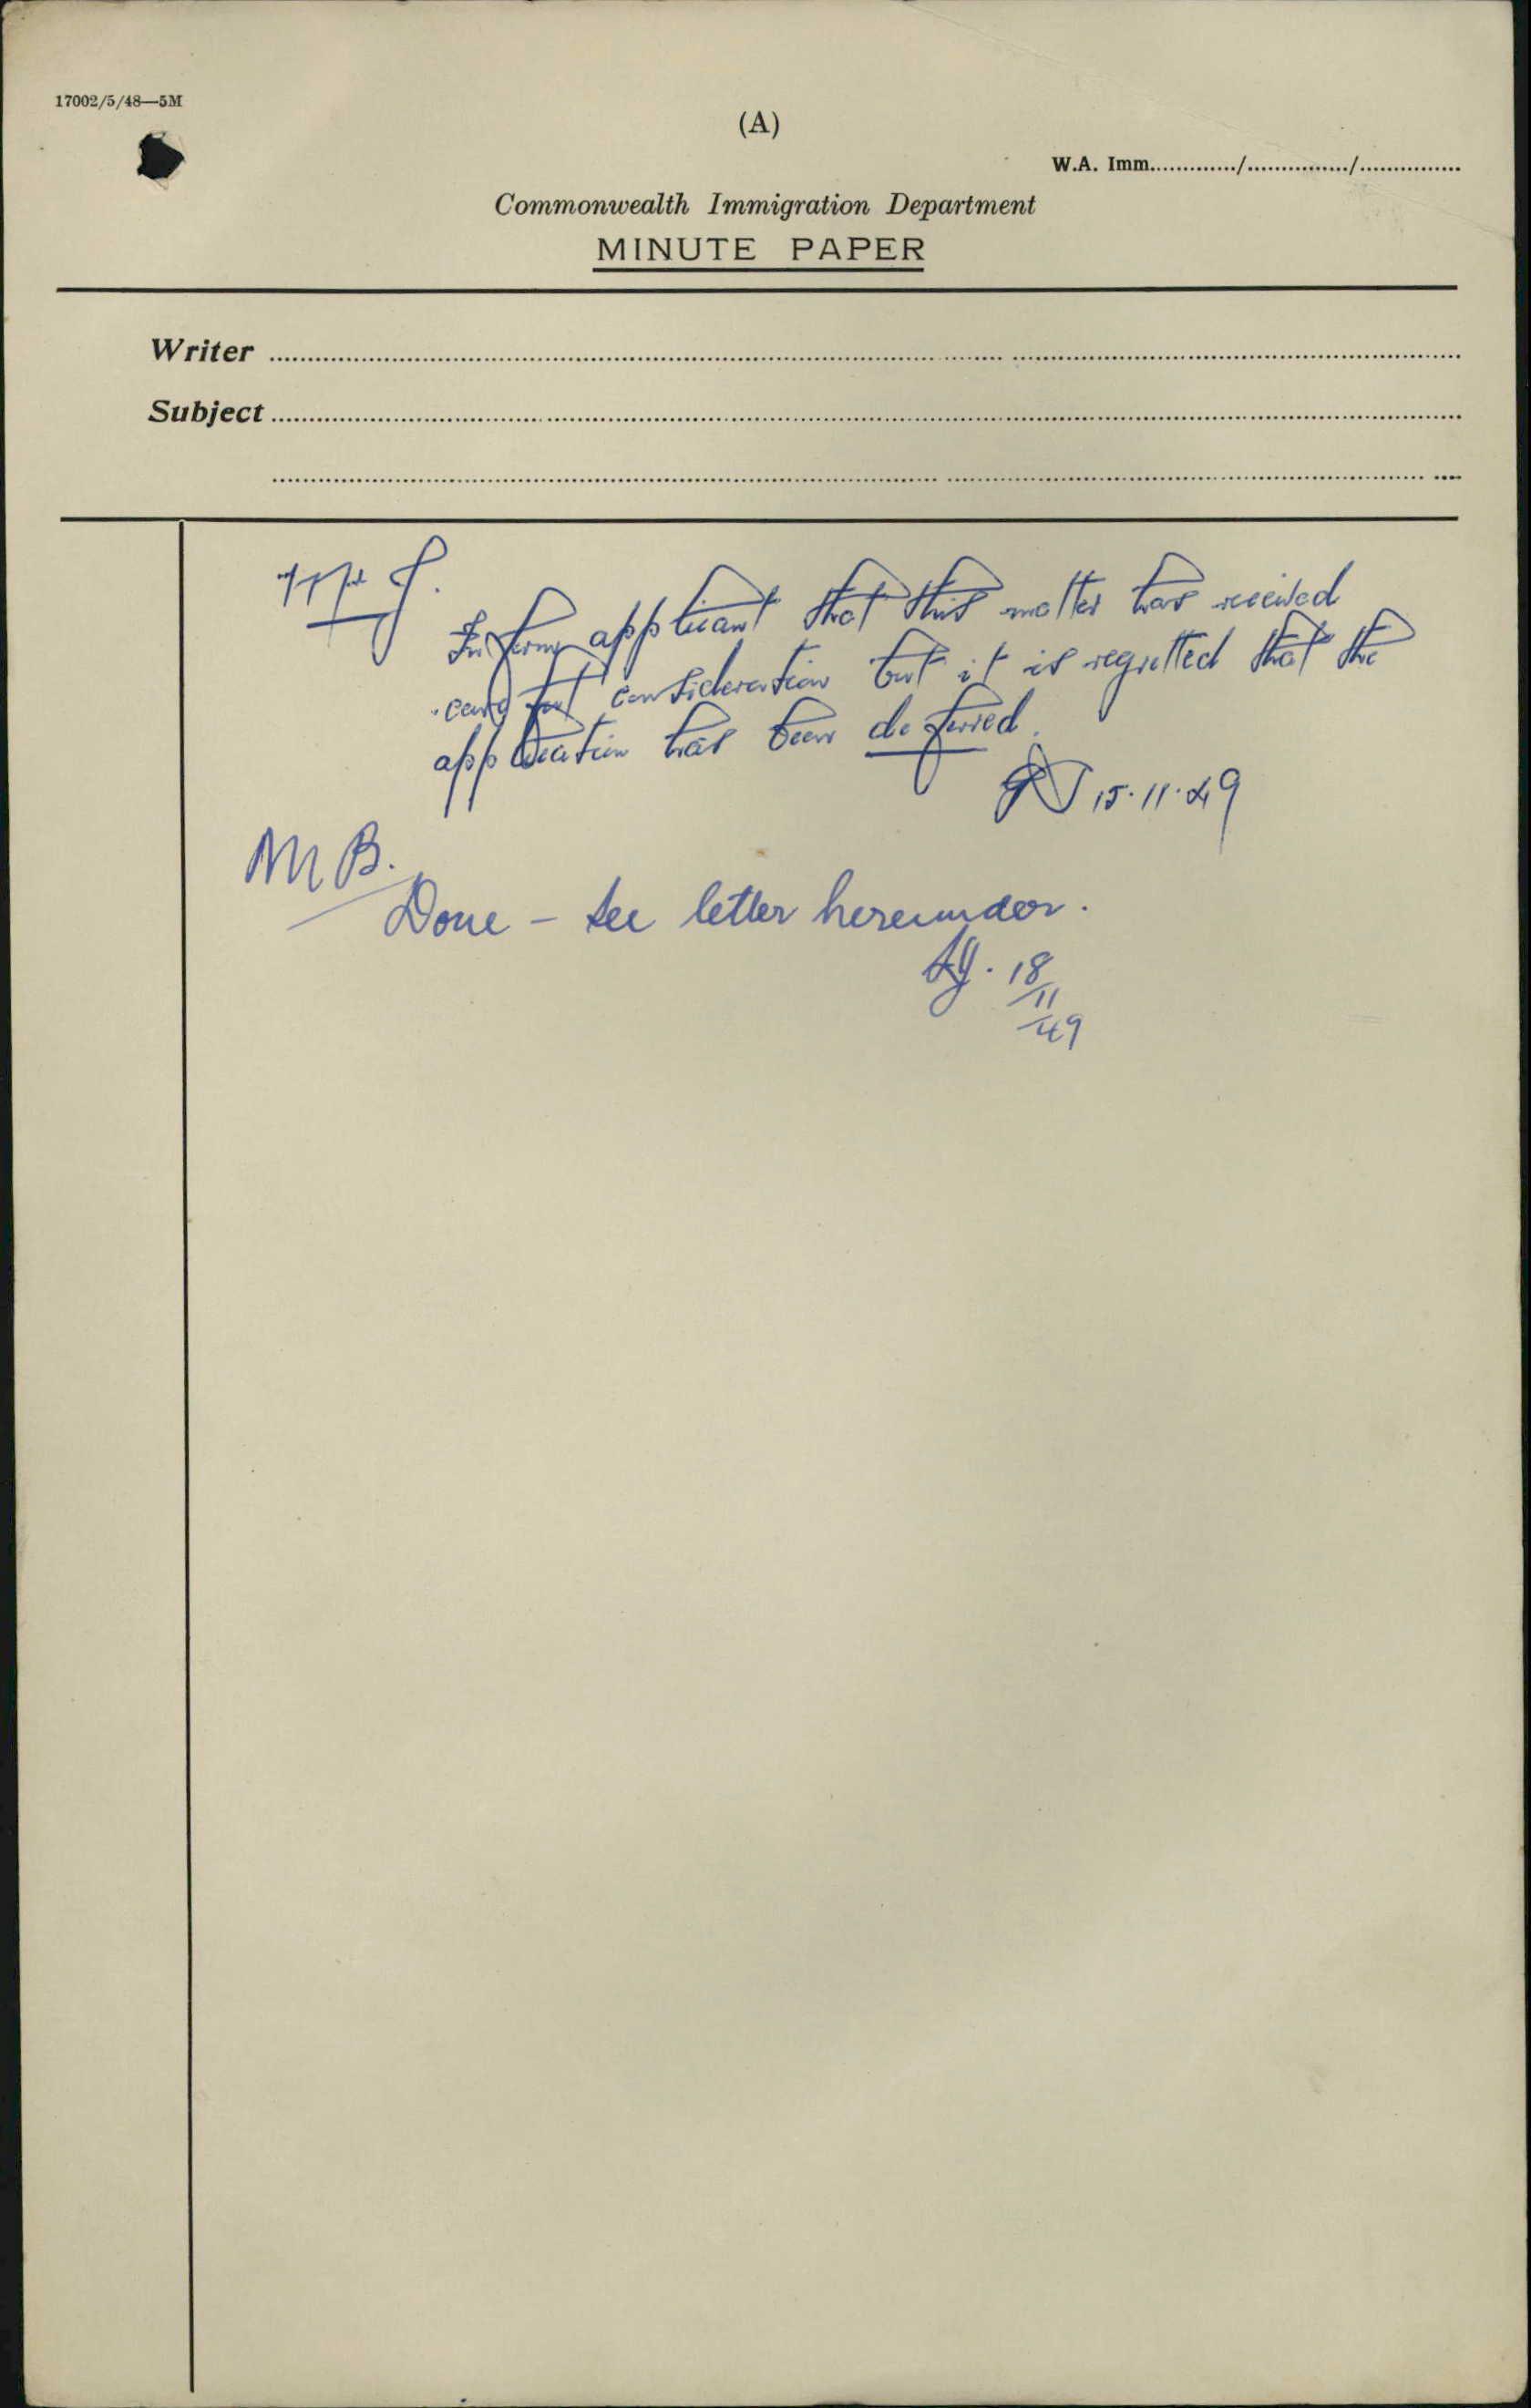 17002/5/48—5M
(A)
W.A. Imm............./.............../...............
Commonwealth Immigration Department
MINUTE PAPER
Writer
Subject
Mr J.
Inform applicant that this matter has received
careful consideration but it is regretted that the
application has been deferred.
15.11.49
Mr B.
Done – see letter hereunder.
18/11/49